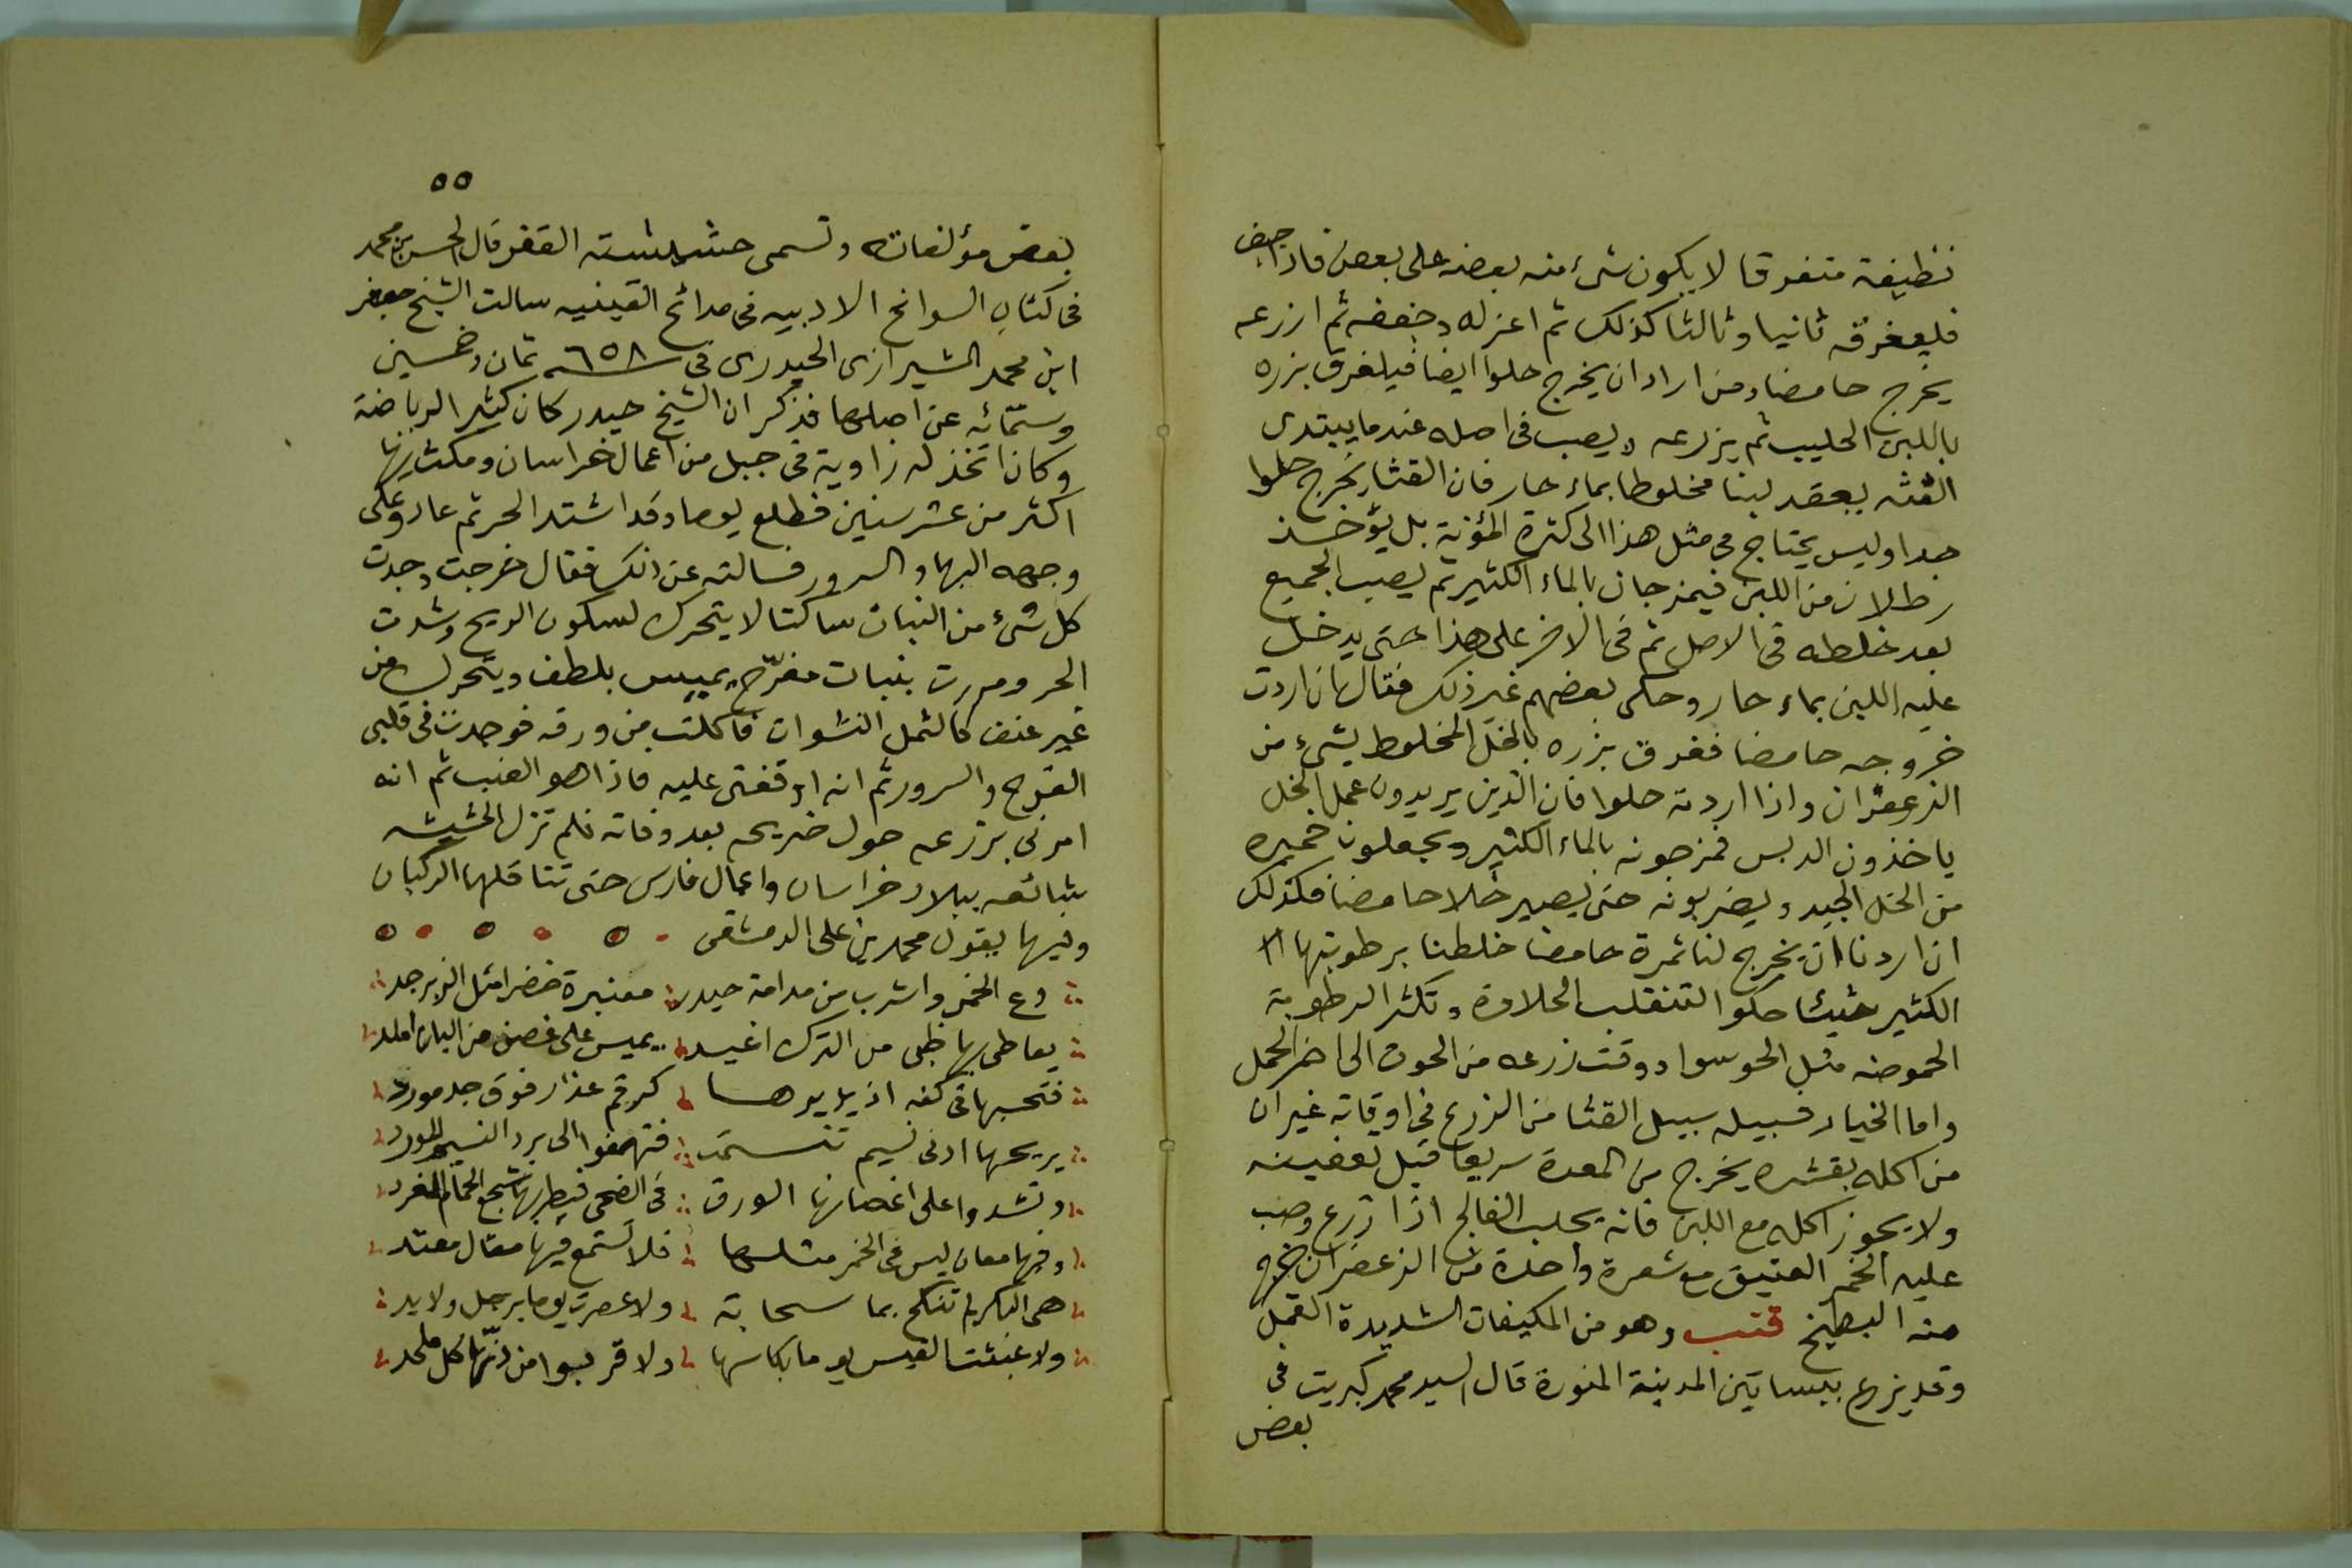 نظيفة متفرقا لا يكون شىء منه بعضه على بعض فاذا جف
فليغرقه ثانيا وثالثا كذلك ثم اعزله وجففه ثم ازرعه
يخرج حامضا ومن اراد ان يخرج حلوا ايضا فيلغرق بزره
باللبن الحليب ثم يزرعه ويصب فى اصله عندما يبتدى
القثه يعقد لبنا مخلوطا بماء حار فان القثا يخرج حلوا
جدا وليس يحتاج فى مثل هذا الى كثرة المؤنة بل يؤخذ
رطلان من اللبن فيمزجان بالماء الكثير ثم يصب الجميع
بعد خلطه فى الاصل ثم فى الاخر على هذا حتى يدخل
عليه اللبن بماء حار وحكى بعضهم غير ذلك فقال ان اردت
خروجه حامضا ففرق بزره بالخل المخلوط بشىء من
الزعفران واذا اردته حلوا فان الذين يريدون عمل الخل
ياخذون الدبس فمزجونه بالماء الكثير ويجعلون خميره
من الخل الجيد ويضربونه حتى يصير خلا حامضا فكذلك
ان اردنا ان يخرج لنا ثمرة حامضا خلطنا برطوبتها
الكثير شيئا حلوا لتنقلب الحلاوة وتكثر الرطوبة
الحموضه مثل الحو سوا ووقت زرعه من الحوت الى اخر الحمل
واما الخيار فسبيله سبيل القثا من الزرع فى اوقاته غير ان
من اكله بقشره يخرج من المعدة سريعا قبل تعفينه
ولا يجوز اكله مع اللبن فانه يجلب الفالج اذا زرع وصب
عليه الخمر العتيق مع شعرة واحدة من الزعفران خرج
منه البطيخ قنب وهو من المكيفات الشديدة الفعل
وقد يزرع ببساتين المدينة المنورة قال السيد محمد كبريت فى
بعض
٥٥
بعض مؤلفاته وتسمى حشيشته الفقر قال الحسن بن محمد
فى كتاب السوانح الادبيه فى مدائح القينيه سالت الشيخ جعفر
ابن محمد الشيرازى الحيدرى فى سنه ٦٥٨ ثمان وخمسين
وستمائه عن اصلها فذكر ان الشيخ حيدر كان كثير الرياضة
وكان اتخذ له زاوية فى جبل من اعمال خراسان ومكث بها
اكثر من عشر سنين فطلع يوما وقد اشتد الحر ثم عاد وعلى
وجهه البها والسرور فسالته عن ذلك فقال خرجت وجدت
كل شىء من النبات ساكتا لا يتحرك لسكون الريح وشدت
الحر ومررت بنبات مفرّح يميس بلطف ويتحرك من
غير عنف كالثمل النشوات فاكلت من ورقه فوجدت فى قلبى
الفرح والسرور ثم انه اوقفنى عليه فاذا هو القنب ثم انه
امرنى بزرعه حول ضريحه بعد وفاته فلم تزل الحشيشه
شائعه ببلاد خراسان واعمال فارس حتى تناقلها الركبان
وفيها يقول محمد بن على الدمشقى
دع الخمر واشرب من مدامة حيدر معنبرة خضرا مثل الزبرجد
يعاطيها ظبى من الترك اغيد يميس على غصن من البان املد
فتحسبها فى كفه اذ يديرها كرقم عذار فوق خد مورد
يريحها ادنى نسيم تنسمت فتهفوا الى برد النسيم المورد
وتشدوا على اغصانها الورق فى الضحى فيطربها شجع الحمام المغرد
وفيها معان ليس فى الخمر مثلها فلا تستمع فيها مقال مفند
هى البكر لم تنكح بما سحابة ولا عصرت يوما برجل ولا يد
ولا عبثت القيس يوما بكاسها ولا قربوا من دنّها كل ملحد